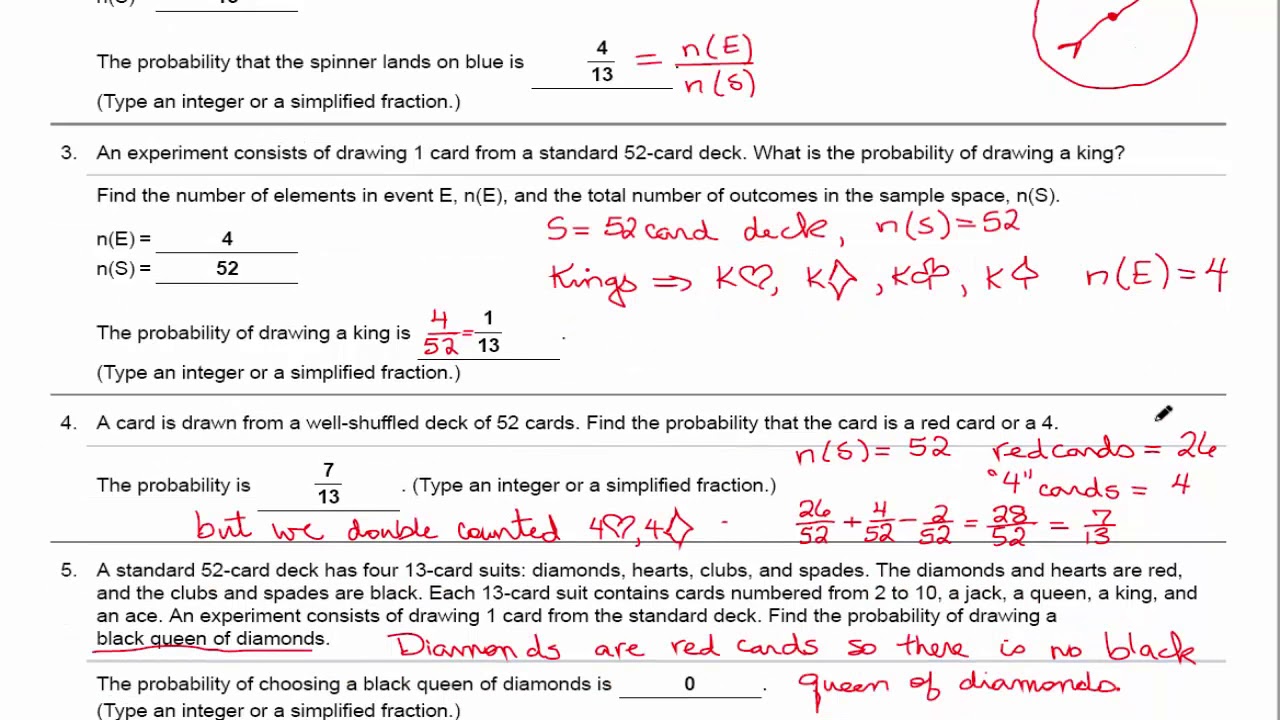 The probability that the spinner lands on blue is 4/13 = n(E)/n(S)
(Type an integer or a simplified fraction.)
3. An experiment consists of drawing 1 card from a standard 52-card deck. What is the probability of drawing a king?
Find the number of elements in event E, n(E), and the total number of outcomes in the sample space, n(S).
S = 52 card deck, n(S) = 52
n(E) = 4
n(S) = 52
Kings ⇒ K♡, K♢, K♧, K♤ n(E) = 4
The probability of drawing a king is 4/52 = 1/13 .
(Type an integer or a simplified fraction.)
4. A card is drawn from a well-shuffled deck of 52 cards. Find the probability that the card is a red card or a 4.
n(S) = 52 red cards = 26
The probability is 7/13 . (Type an integer or a simplified fraction.) "4" cards = 4
but we double counted 4♡, 4♢ 26/52 + 4/52 - 2/52 = 28/52 = 7/13
5. A standard 52-card deck has four 13-card suits: diamonds, hearts, clubs, and spades. The diamonds and hearts are red,
and the clubs and spades are black. Each 13-card suit contains cards numbered from 2 to 10, a jack, a queen, a king, and
an ace. An experiment consists of drawing 1 card from the standard deck. Find the probability of drawing a
black queen of diamonds. Diamonds are red cards so there is no black
The probability of choosing a black queen of diamonds is 0 . queen of diamonds.
(Type an integer or a simplified fraction.)